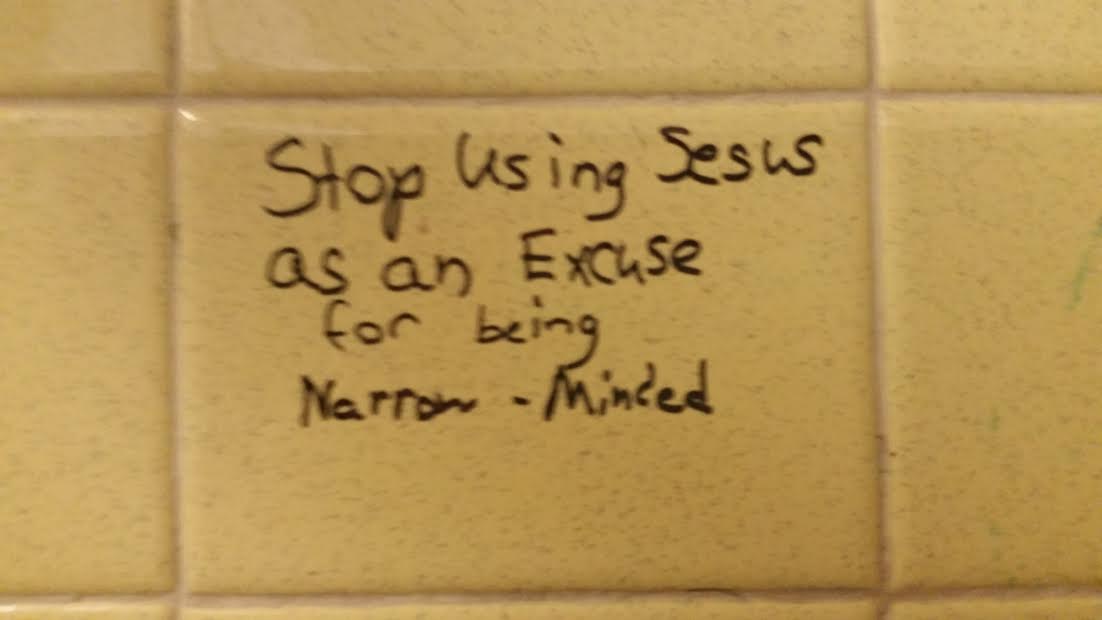 Stop Using Jesus
as an Excuse
for being
Narrow - Minded